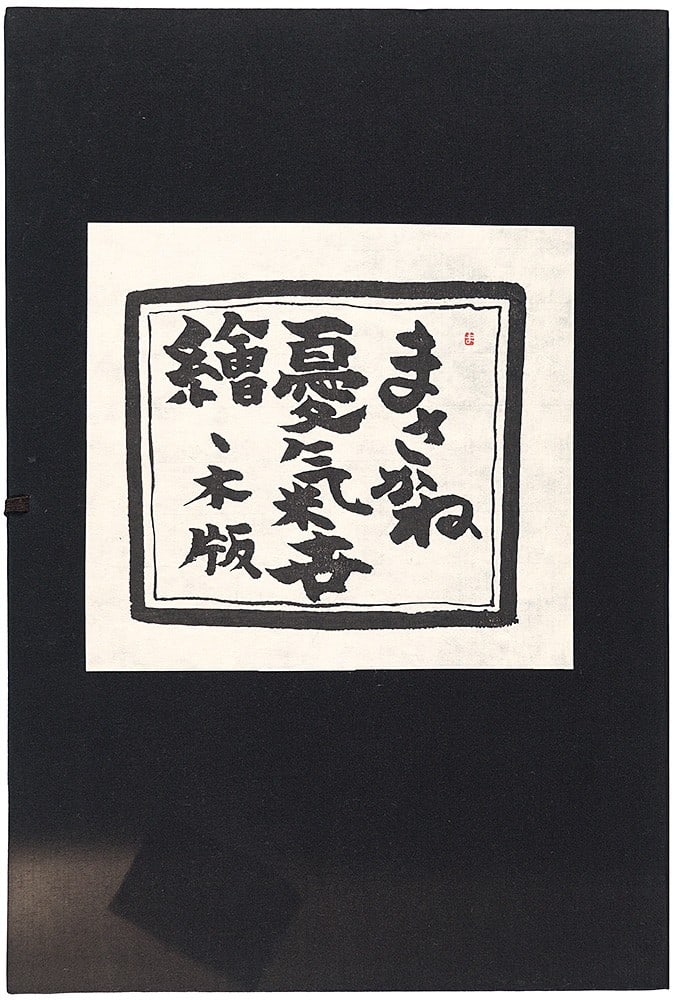 まさかね
憂氣世
繪、木版